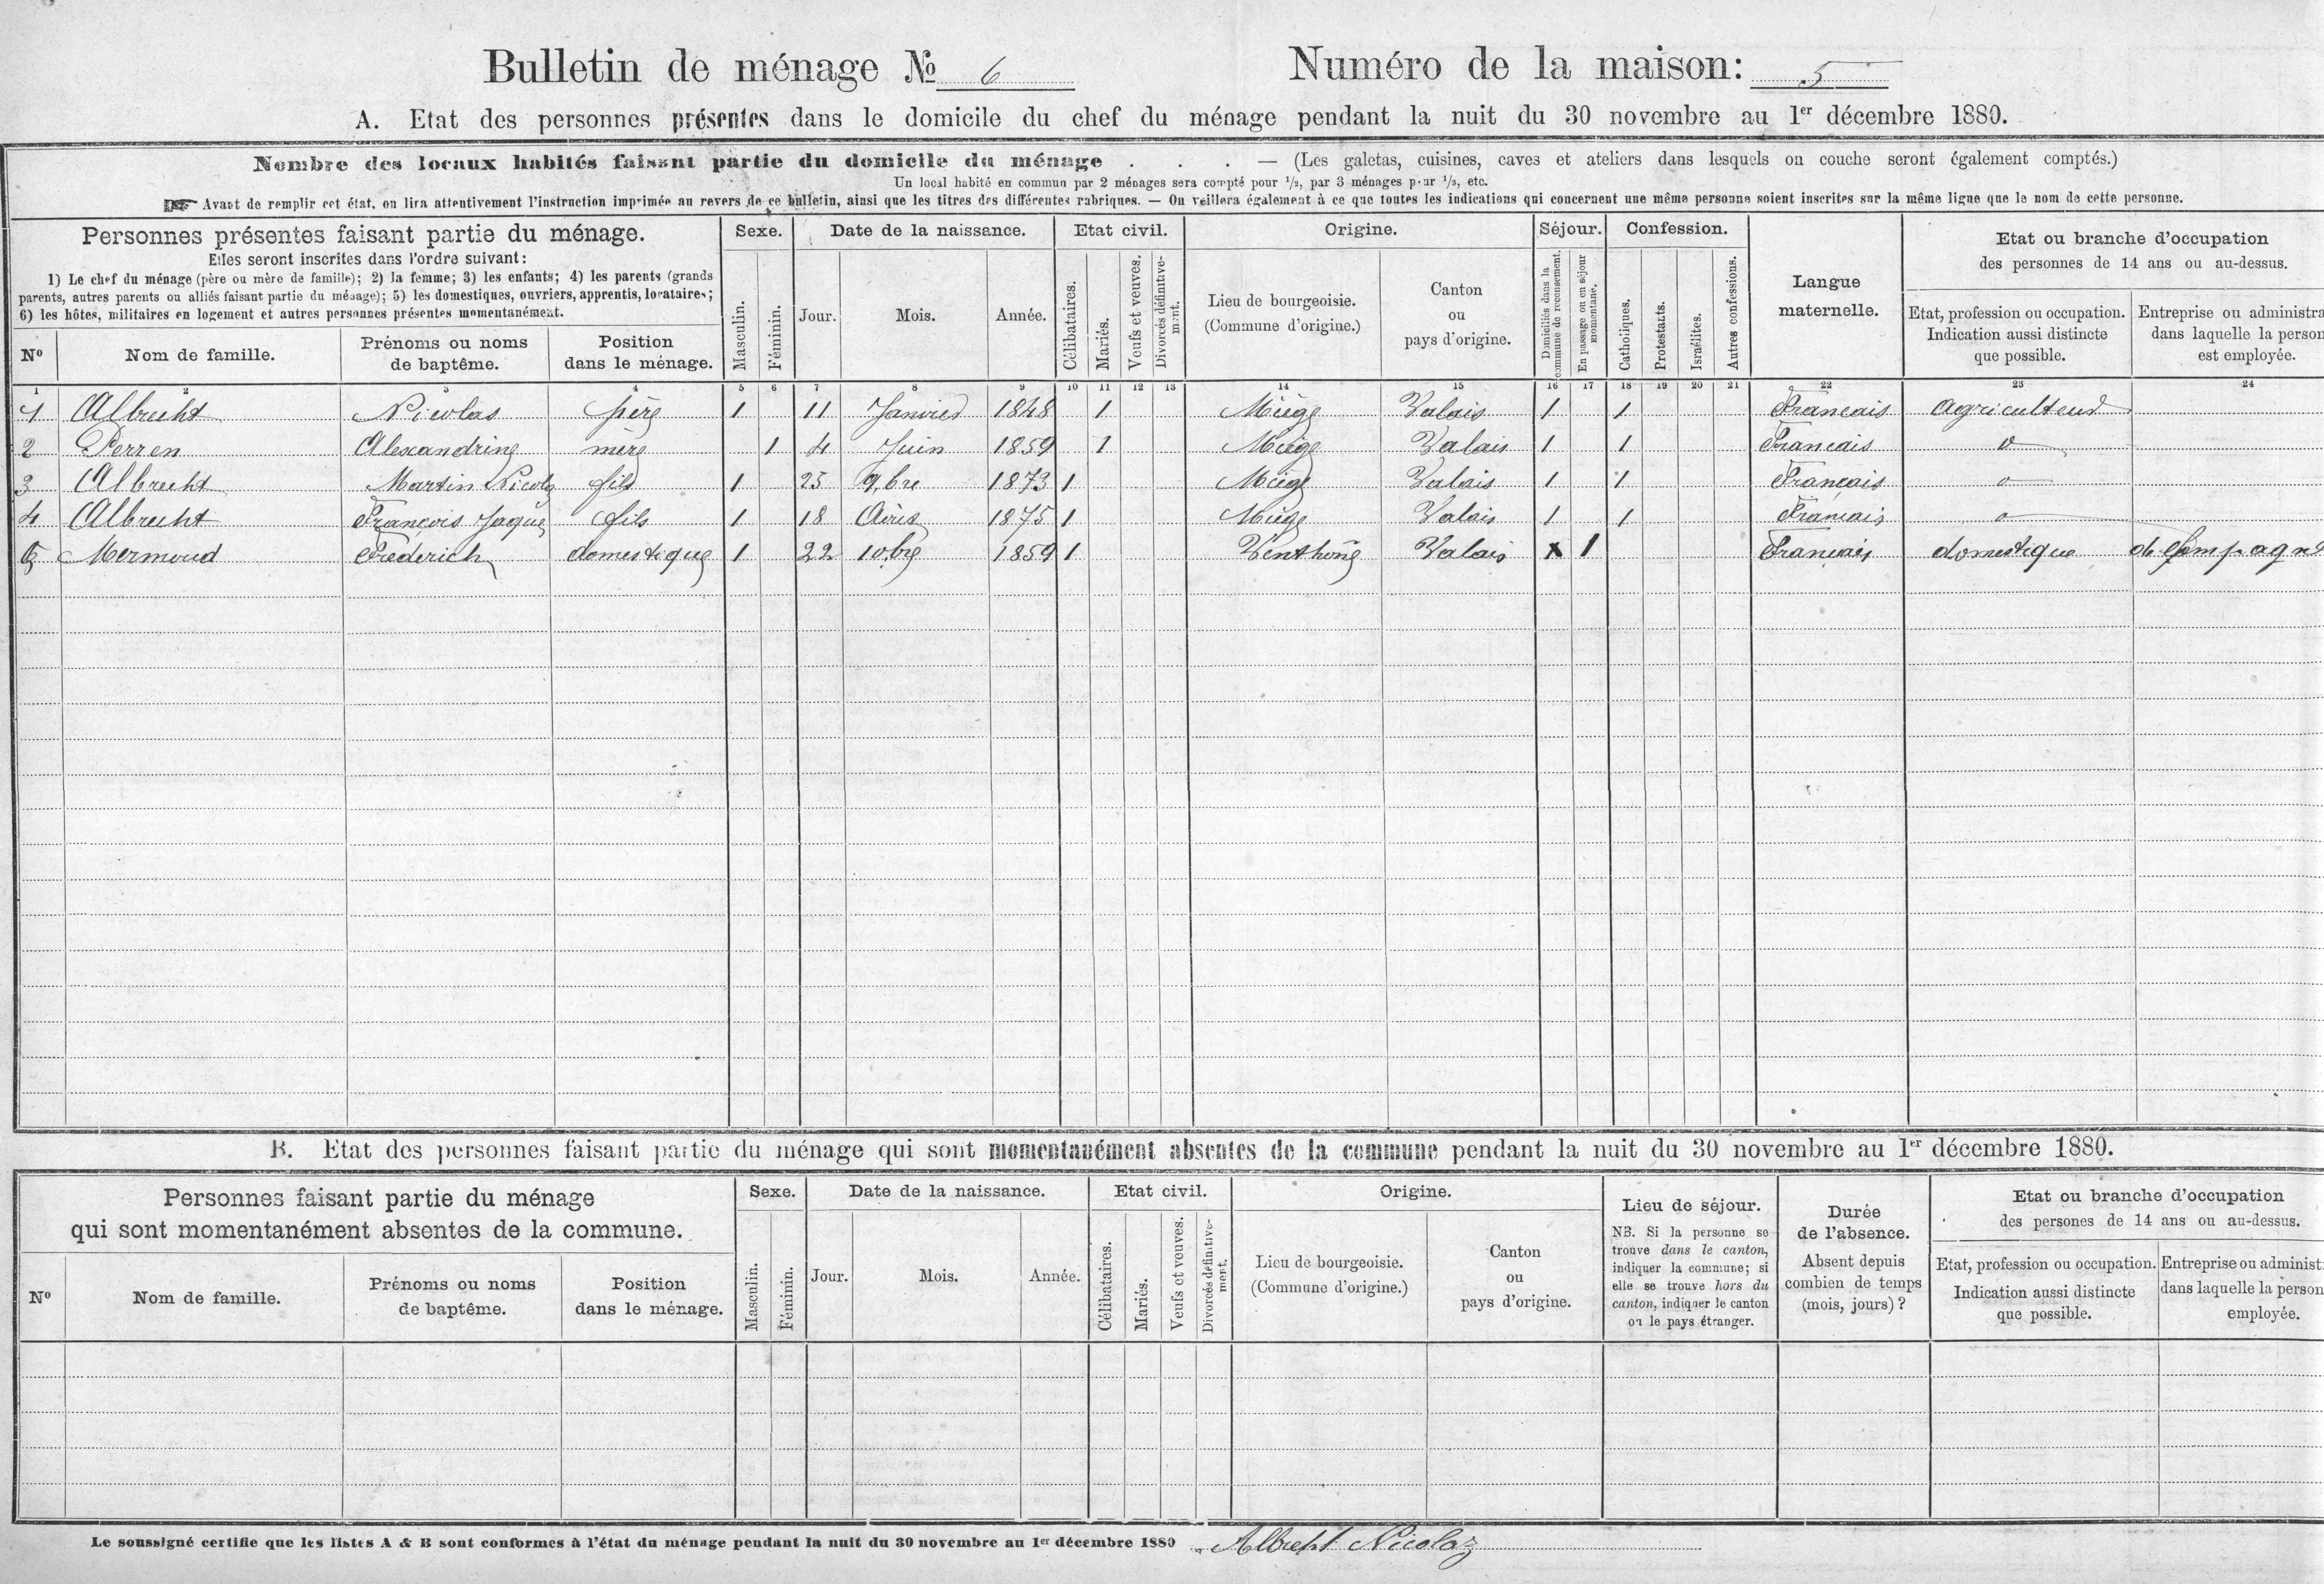 Bulletin de ménage № 6 Numéro de la maison: 5
A. Etat des personnes présentes dans le domicile du chef du ménage pendant la nuit du 30 novembre au 1er décembre 1880.
Nombre des locaux habités faisant partie du domicile du ménage . . . — (Les galetas, cuisines, caves et ateliers dans lesquels on couche seront également comptés.)
Un local habité en commun par 2 ménages sera compté pour 1/2, par 3 ménages pour 1/3, etc.
☞ Avant de remplir cet état, on lira attentivement l'instruction imprimée au revers de ce bulletin, ainsi que les titres des différentes rubriques. — On veillera également à ce que toutes les indications qui concernent une même personne soient inscrites sur la même ligne que le nom de cette personne.
Personnes présentes faisant partie du ménage.
Elles seront inscrites dans l'ordre suivant:
1) Le chef du ménage (père ou mère de famille); 2) la femme; 3) les enfants; 4) les parents (grands
parents, autres parents ou alliés faisant partie du ménage); 5) les domestiques, ouvriers, apprentis, locataires;
6) les hôtes, militaires en logement et autres personnes présentes momentanément.
No
Nom de famille.
Prénoms ou noms
de baptême.
Position
dans le ménage.
Sexe.
Masculin.
Féminin.
Date de la naissance.
Jour.
Mois.
Année.
Etat civil.
Célibataires.
Mariés.
Veufs et veuves.
Divorcés définitive-
ment.
Origine.
Lieu de bourgeoisie.
(Commune d'origine.)
Canton
ou
pays d'origine.
Séjour.
Domiciliés dans la
commune de recensement.
En passage ou en séjour
momentané.
Confession.
Catholiques.
Protestants.
Israélites.
Autres confessions.
Langue
maternelle.
Etat ou branche d'occupation
des personnes de 14 ans ou au-dessus.
Etat, profession ou occupation.
Indication aussi distincte
que possible.
Entreprise ou administra
dans laquelle la person
est employée.
1 2 3 4 5 6 7 8 9 10 11 12 13 14 15 16 17 18 19 20 21 22 23 24
1 Albrecht Nicolas père 1 11 Janvier 1848 1 Miège Valais 1 1 Francais agriculteur
2 Perren Alexandrine mère 1 4 Juin 1859 1 Miège Valais 1 1 Francais o
3 Albrecht Martin Nicola fils 1 25 9bre 1873 1 Miège Valais 1 1 Français o
4 Albrecht Francois Jaques fils 1 18 1875 1 Miège Valais 1 1 Francais o
5 Mermoud Frederich domestique 1 22 10bre 1859 1 Venthône Valais x 1 Français domestique de Campagne
B. Etat des personnes faisant partie du ménage qui sont momentanément absentes de la commune pendant la nuit du 30 novembre au 1er décembre 1880.
Personnes faisant partie du ménage
qui sont momentanément absentes de la commune.
No
Nom de famille.
Prénoms ou noms
de baptême.
Position
dans le ménage.
Sexe.
Masculin.
Féminin.
Date de la naissance.
Jour.
Mois.
Année.
Etat civil.
Célibataires.
Mariés.
Veufs et veuves.
Divorcés définitive-
ment.
Origine.
Lieu de bourgeoisie.
(Commune d'origine.)
Canton
ou
pays d'origine.
Lieu de séjour.
NB. Si la personne se
trouve dans le canton,
indiquer la commune; si
elle se trouve hors du
canton, indiquer le canton
ou le pays étranger.
Durée
de l'absence.
Absent depuis
combien de temps
(mois, jours)?
Etat ou branche d'occupation
des persones de 14 ans ou au-dessus.
Etat, profession ou occupation.
Indication aussi distincte
que possible.
Entreprise ou administ
dans laquelle la person
employée.
Le soussigné certifie que les listes A & B sont conformes à l'état du ménage pendant la nuit du 30 novembre au 1er décembre 1880 Albrecht Nicolas